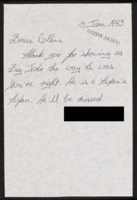 13 June 1993
Bruce Collins
Thank you for showing us
Big John the way he was.
You're right. He is a
He'll be missed.